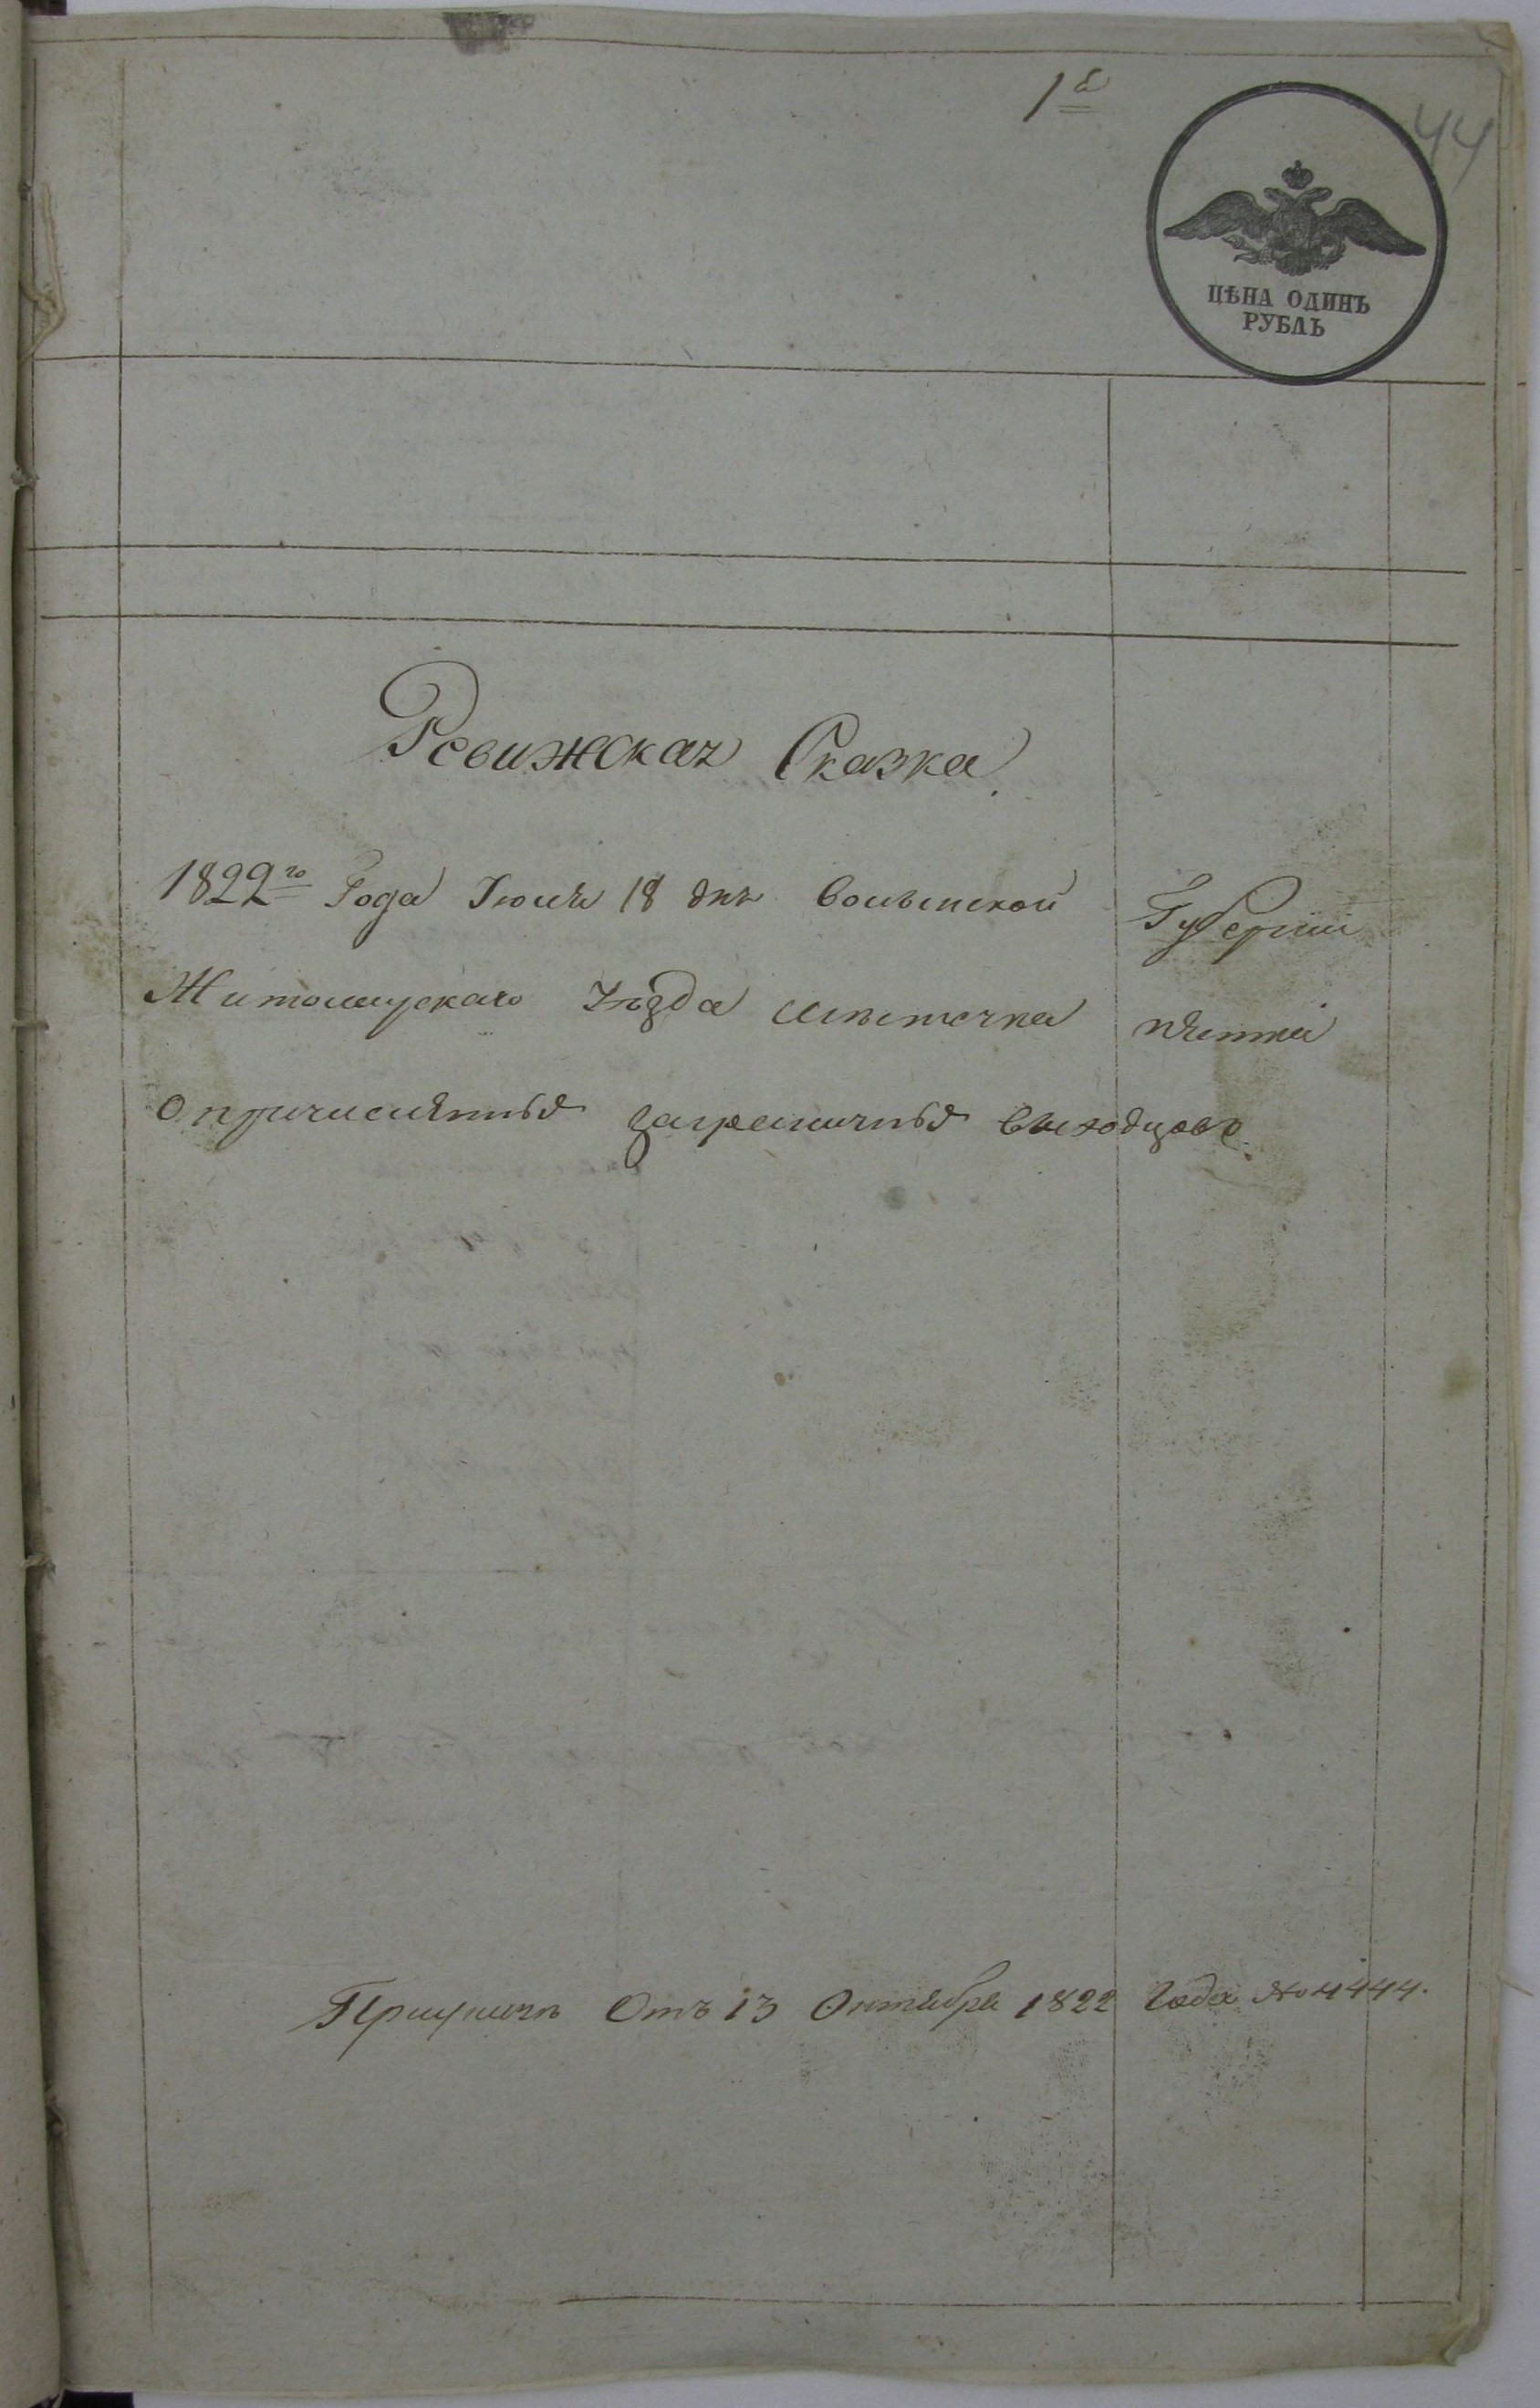 1й
44
ЦѢНА ОДИНЪ
РУБЛЬ
Ревижская Сказка.
1822го Года Июля 18 дня Волынской Губернии
Житомирскаго Уѣзда Мѣстечка
О причисленныхъ заграничныхъ выходцовъ.
При указѣ Отъ 13 Октября 1822 Года № 4444.